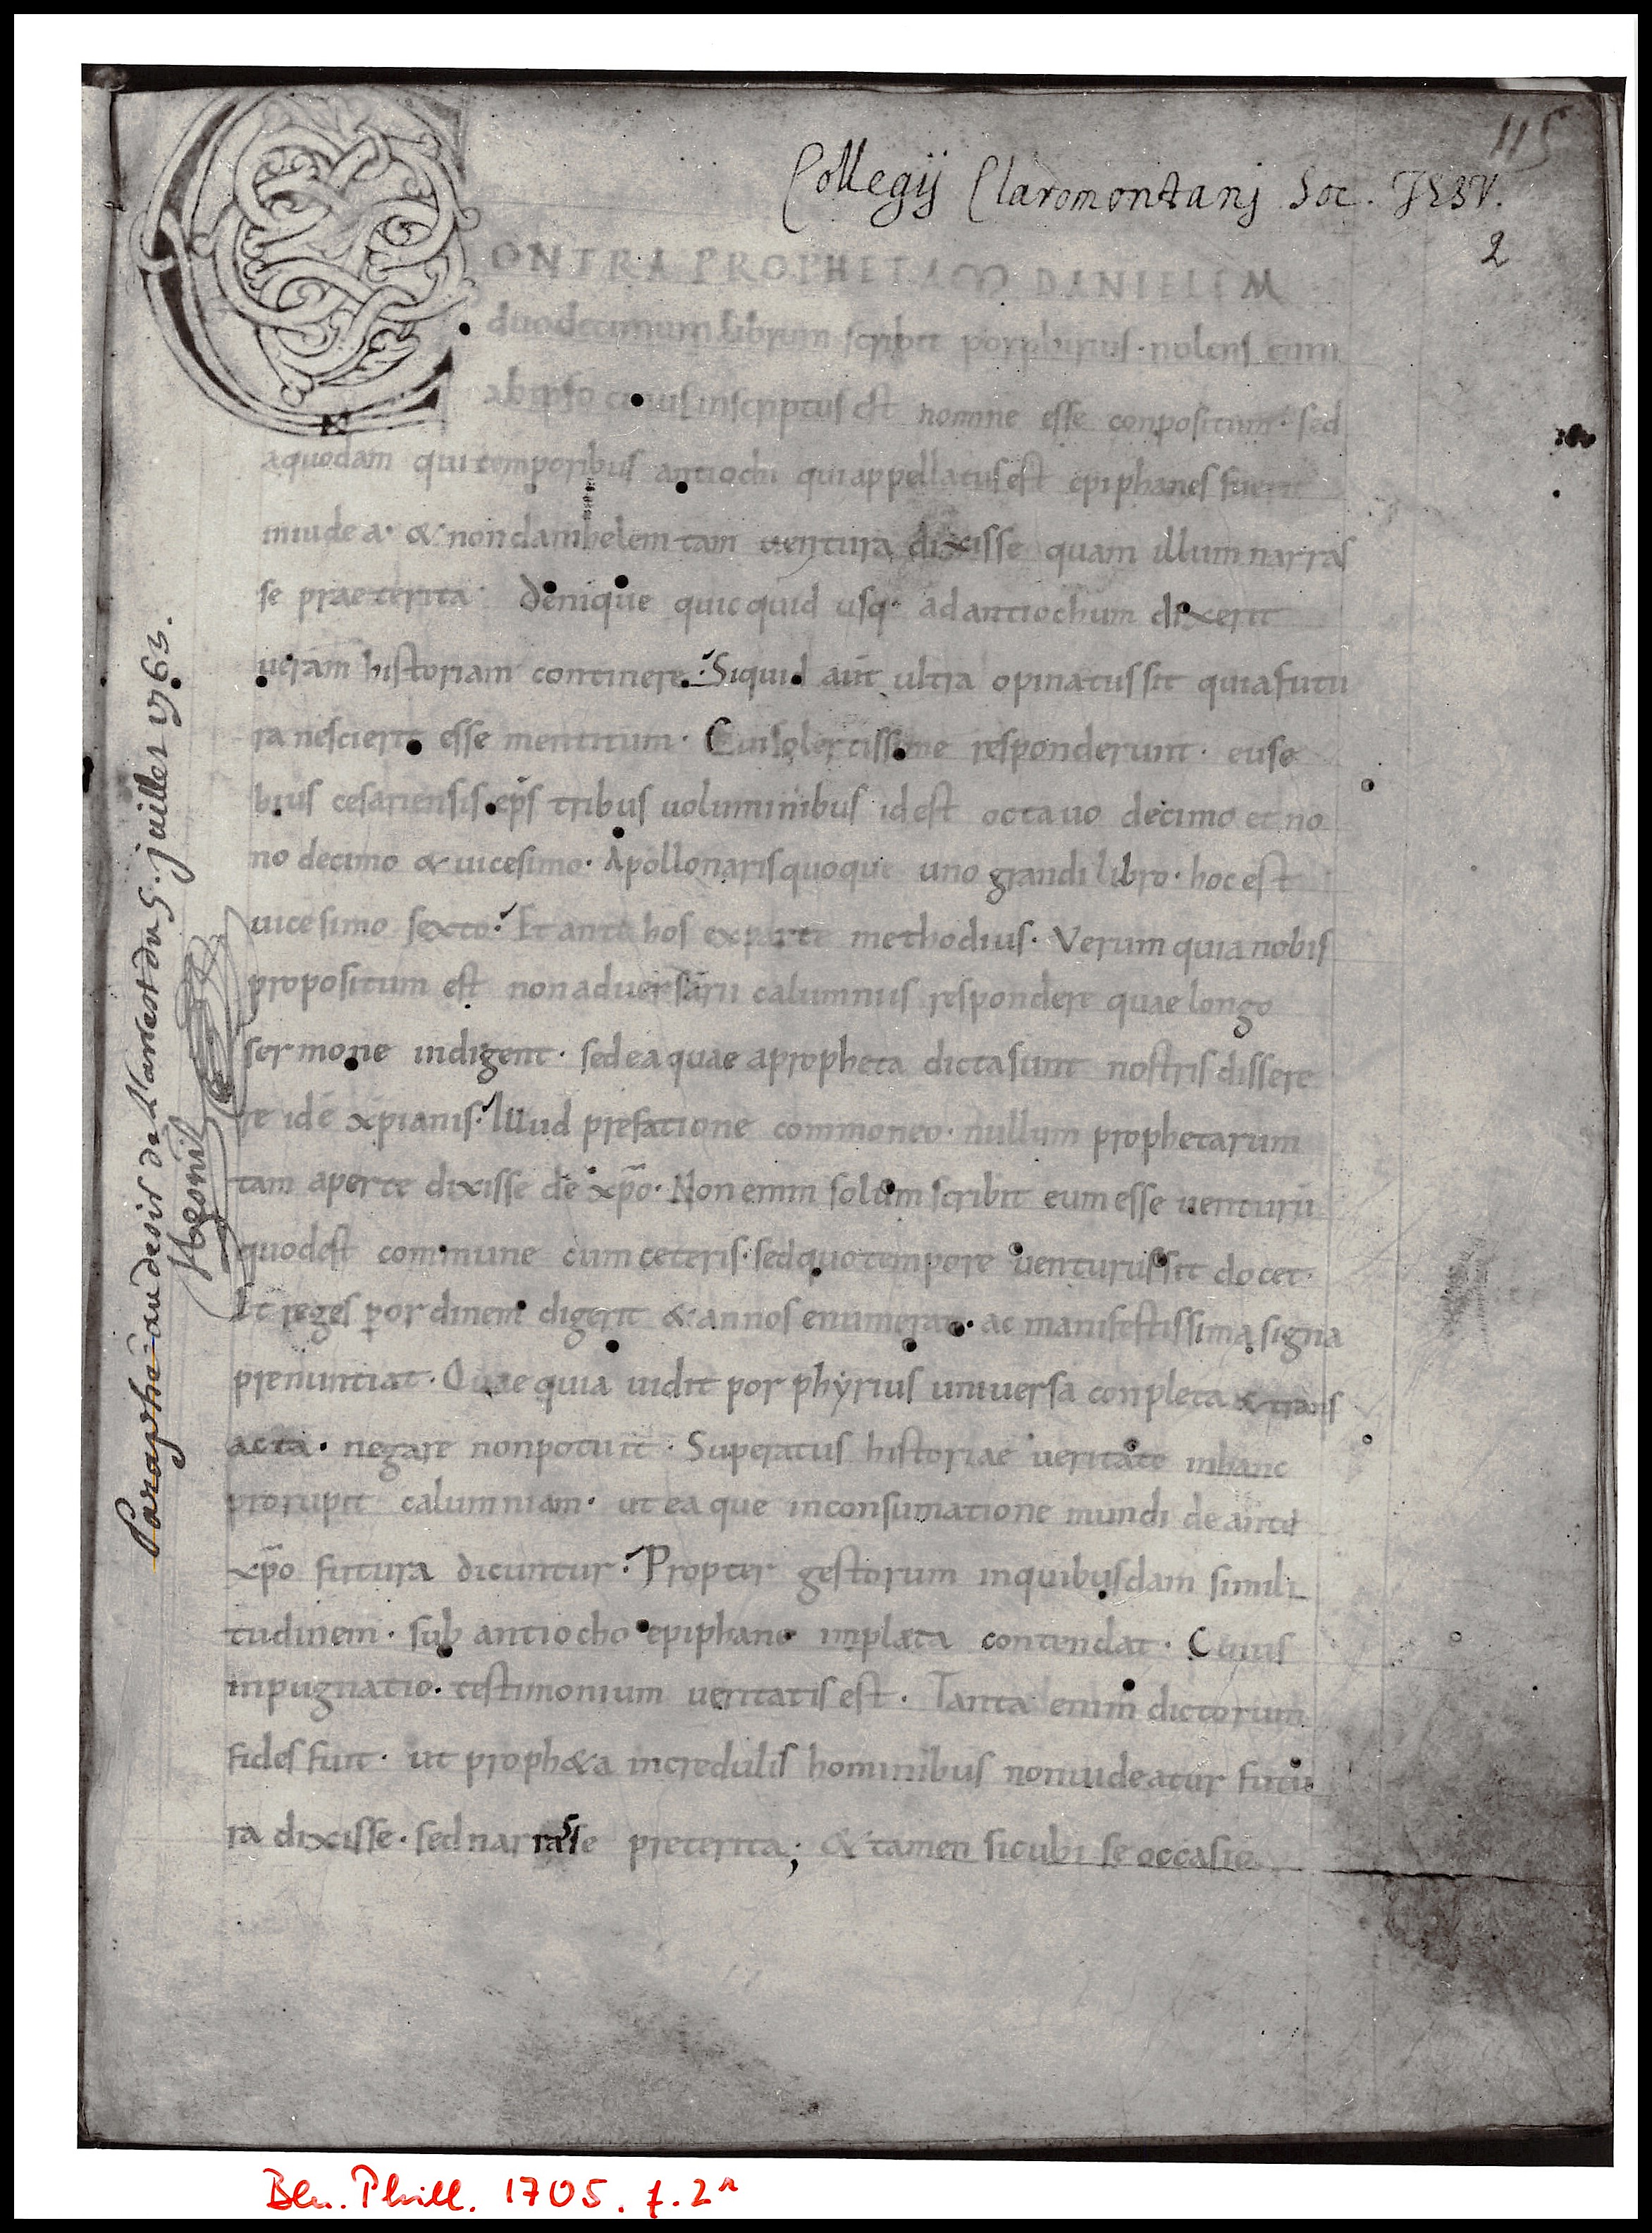 115
Collegij Claromontanj Soc. JESV.
2
CONTRA PROPHETAM DANIELEM
duodecimum librum scribit porphirius · nolens eum
ab ipso cuius inscriptus est nomine esse conpositum · sed
a quodam qui temporibus antiochi qui appellatus est epiphanes fuerit
in iudea · & non danihelem tam ventura dixisse quam illum narras
se praeterita · Denique quicquid usq· ad antiochum dixerit
veram historiam continere · Siquid aut ultra opinatus sit quia futu
ra nescierit esse mentitum · Cui solertissime responderunt · euse
bius cesariensis eps tribus voluminibus id est octavo decimo et no
no decimo & vicesimo · Apollonaris quoque uno grandi libro · hoc est
vicesimo sexto · Et ante hos ex parte methodius · Verum quia nobis
propositum est non adversarii calumniis respondere quae longo
sermone indigent · sed ea quae a propheta dicta sunt nostris dissere
re id ē xpianis · Illud prefatione commoneo · nullum prophetarum
tam aperte dixisse de xpo · Non enim solum scribit eum esse venturū
quod est commune cum ceteris · sed quo tempore venturus sit docet ·
Et reges p ordinem digerit & annos enumerat · ac manifestissima signa
prenuntiat · Quae quia vidit porphyrius universa conpleta & trans
acta · negare non potuit · Superatus historiae veritate in hanc
prorupit calumniam · ut ea que in consumatione mundi de anti
xpo futura dicuntur · Propter gestorum in quibusdam simili
tudinem · sub antiocho epiphane impleta contendat · Cuius
inpugnatio · testimonium veritatis est · Tanta enim dictorum
fides fuit · ut proph&a incredulis hominibus non videatur futu
ra dixisse · sed narrasse preterita ; & tamen sicubi se occasio
Paraphé au desir de l'arrest du 5. juillet 1763.
Mesnil
Bln. Phill. 1705. f. 2r